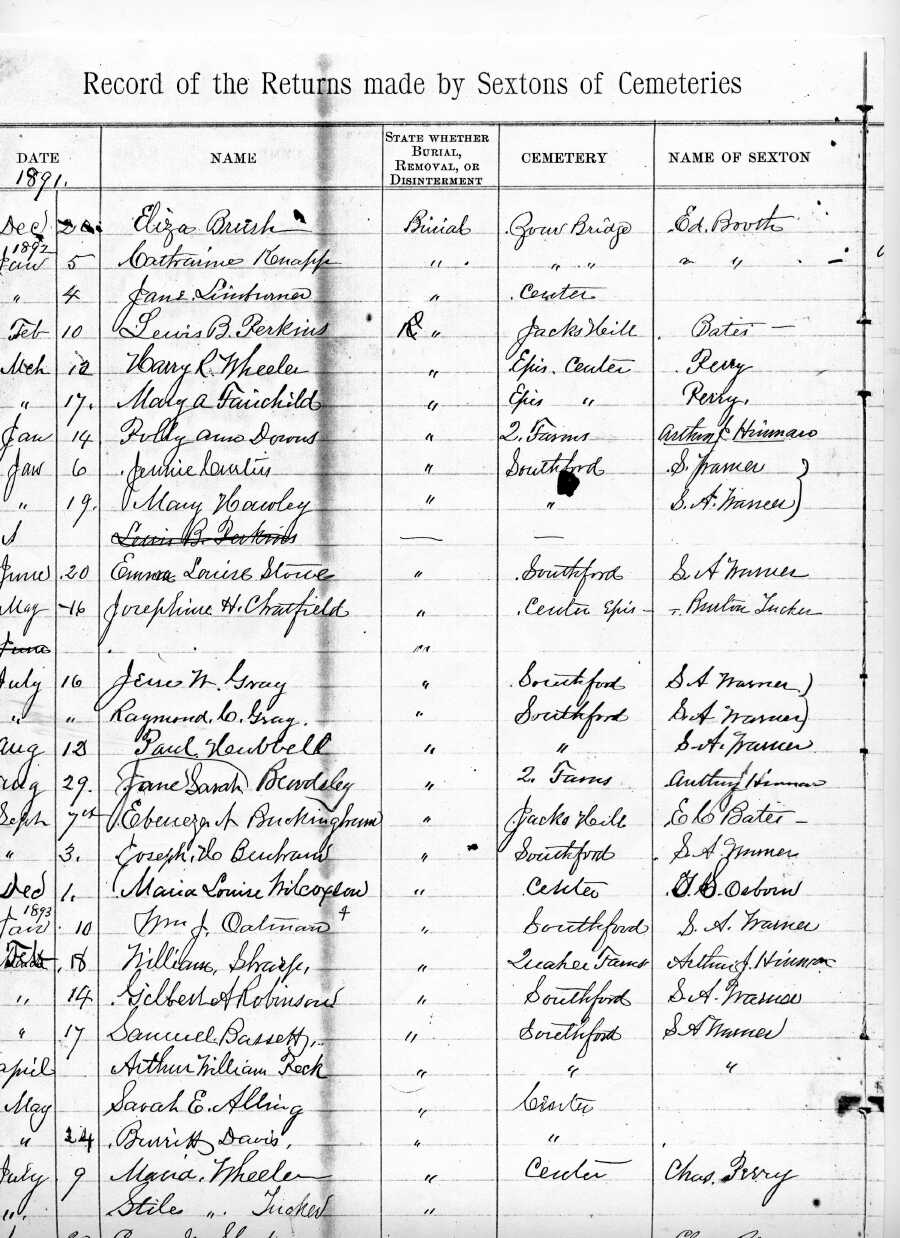 Record of the Returns made by Sextons of Cemeteries
DATE NAME STATE WHETHER BURIAL, REMOVAL, OR DISINTERMENT CEMETERY NAME OF SEXTON
1891.
Dec Eliza Brush Burial Zoar Bridge Ed. Booth
1892
Jan 5 Catharine Knapp " " " " "
" 4 Jane Linburner " Center
Feb 10 Lewis B. Perkins " Jacks Hill Bates —
Mch 12 Harry R. Wheeler " Epis. Center Perry
" 17. Mary A Fairchild " Epis " Perry.
Jan 14 Polly Ann Downs " 2. Farms Arthur J Hinman
Jan 6 Jennie Curtis " Southford S. Warner
" 19. Mary Hawley " " S. A. Warner
Lewis B. Perkins — —
June 20 Emma Louise Stone " Southford S. A Warner
May 16 Josephine H. Chatfield " Center Epis — Burton Tucker
June "
July 16 W. Gray " Southford S A Warner
" " Raymond. C. Gray. " Southford S. A Warner
Aug Paul Hubbell " " S. A. Warner
Aug 29. Jane Sarah Beardsley " 2. Farms Arthur J Hinman
Sept 7th Ebenezer A Buckingham " Jacks Hill E C Bates —
" 3. Joseph. H. Bertram " Southford S. A Warner
Dec 1. Maria Louise Wilcoxson " Center Osborn
1893
Jan 10 Wm J. Oatman 4 " Southford S. A. Warner
Feb 18 William, Sharp, " Quaker Farms Arthur J. Hinman
" 14 Gilbert A Robinson " Southford S. A. Warner
" 17 Samuel Bassett, " Southford S A Warner
April Arthur William Peck " " "
May Sarah E. Alling " Center
" 24 Burritt Davis. " "
July 9 Maria. Wheeler " Center Chas. Perry
" Stiles " Tucker "